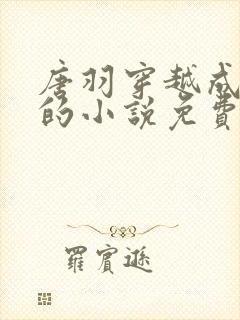 唐羽穿越成
的小説免費
羅賓遜